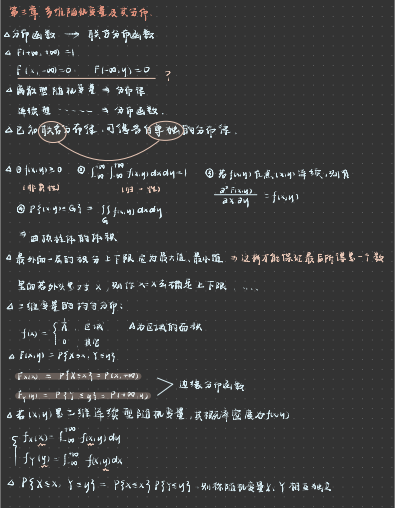 第三章 多维随机变量及其分布.
△ 分布函数 → 联合分布函数
△ F(+∞, +∞) = 1
F(x, -∞) = 0 F(-∞, y) = 0 ?
△ 离散型随机变量 → 分布律
连续型 ------ → 分布函数.
△ 已知联合分布律, 可得各自单独的分布律.
△ ① f(x,y) ≥ 0 ② ∫_{-∞}^{+∞} ∫_{-∞}^{+∞} f(x,y) dxdy = 1 ③ 若 f(x,y) 在点 (x,y) 连续, 则有
(非负性) (归一性) ∂²F(x,y) / ∂x∂y = f(x,y)
④ P{(x,y)∈G} = ∬_G f(x,y) dxdy
△ 最外面一层的积分上下限定为最大值、最小值 ⇒ 这样才能保证最后所得是一个数
△ 二维变量的均匀分布:
f(x) = { 1/A, 区域 A为区域的面积
0, 其它
△ F(x,y) = P{X≤x, Y≤y}
F_X(x) = P{X≤x} = F(x,+∞)
边缘分布函数
F_Y(y) = P{Y≤y} = F(+∞,y)
△ 若(X,Y)是二维连续型随机变量, 其概率密度为f(x,y)
{ f_X(x) = ∫_{-∞}^{+∞} f(x,y) dy
f_Y(y) = ∫_{-∞}^{+∞} f(x,y) dx
△ P{X≤x, Y≤y} = P{X≤x} P{Y≤y} 则称随机变量X, Y相互独立